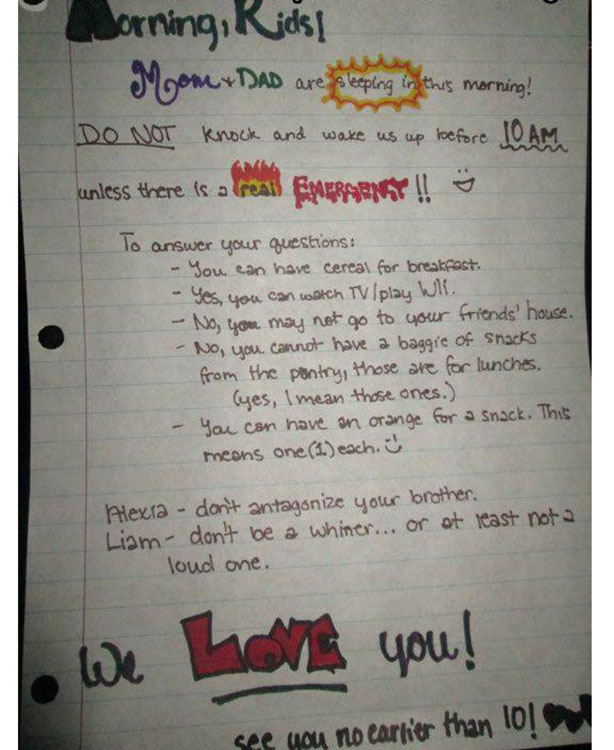 Morning, Kids!
Mom + DAD are sleeping in this morning!
DO NOT knock and wake us up before 10 AM
unless there is a real EMERGENCY!!
To answer your questions:
- You can have cereal for breakfast.
- Yes, you can watch TV/play Wii.
- No, you may not go to your friends' house.
- No, you cannot have a baggie of snacks
from the pantry, those are for lunches.
(yes, I mean those ones.)
- You can have an orange for a snack. This
means one (1) each. :)
Alexia - don't antagonize your brother.
Liam - don't be a whiner... or at least not a
loud one.
We LOVE you!
see you no earlier than 10!